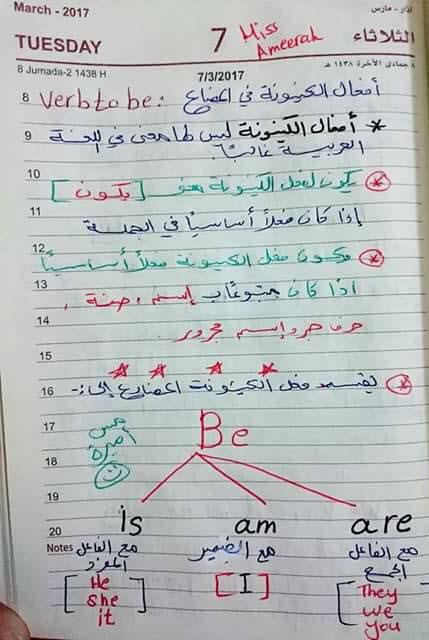 March - 2017
آذار - مارس
TUESDAY
7
Miss
Ameerah
الثلاثاء
8 Jumada-2 1438 H
7/3/2017
٨ جمادى الآخرة ١٤٣٨ هـ
8 Verb to be: أفعال الكينونة في المضارع
9 * أفعال الكينونة ليس لها معنى في اللغة
العربية غالباً.
10 * يكون لفعل الكينونة معنى [يكون]
11 إذا كان فعلاً أساسياً في الجملة
12 * ويكون فعل الكينونة فعلاً أساسياً
13 اذا كان متبوعاً ب إسم، صفة،
14 حرف جر وإسم مجرور.
15
16 * يقسم فعل الكينونة المضارع إلى:-
17 Be
مس
أميرة
18
19
20 is am are
Notes مع الفاعل المفرد
مع الضمير
مع الفاعل الجمع
[He
she
it]
[I]
[They
we
you]